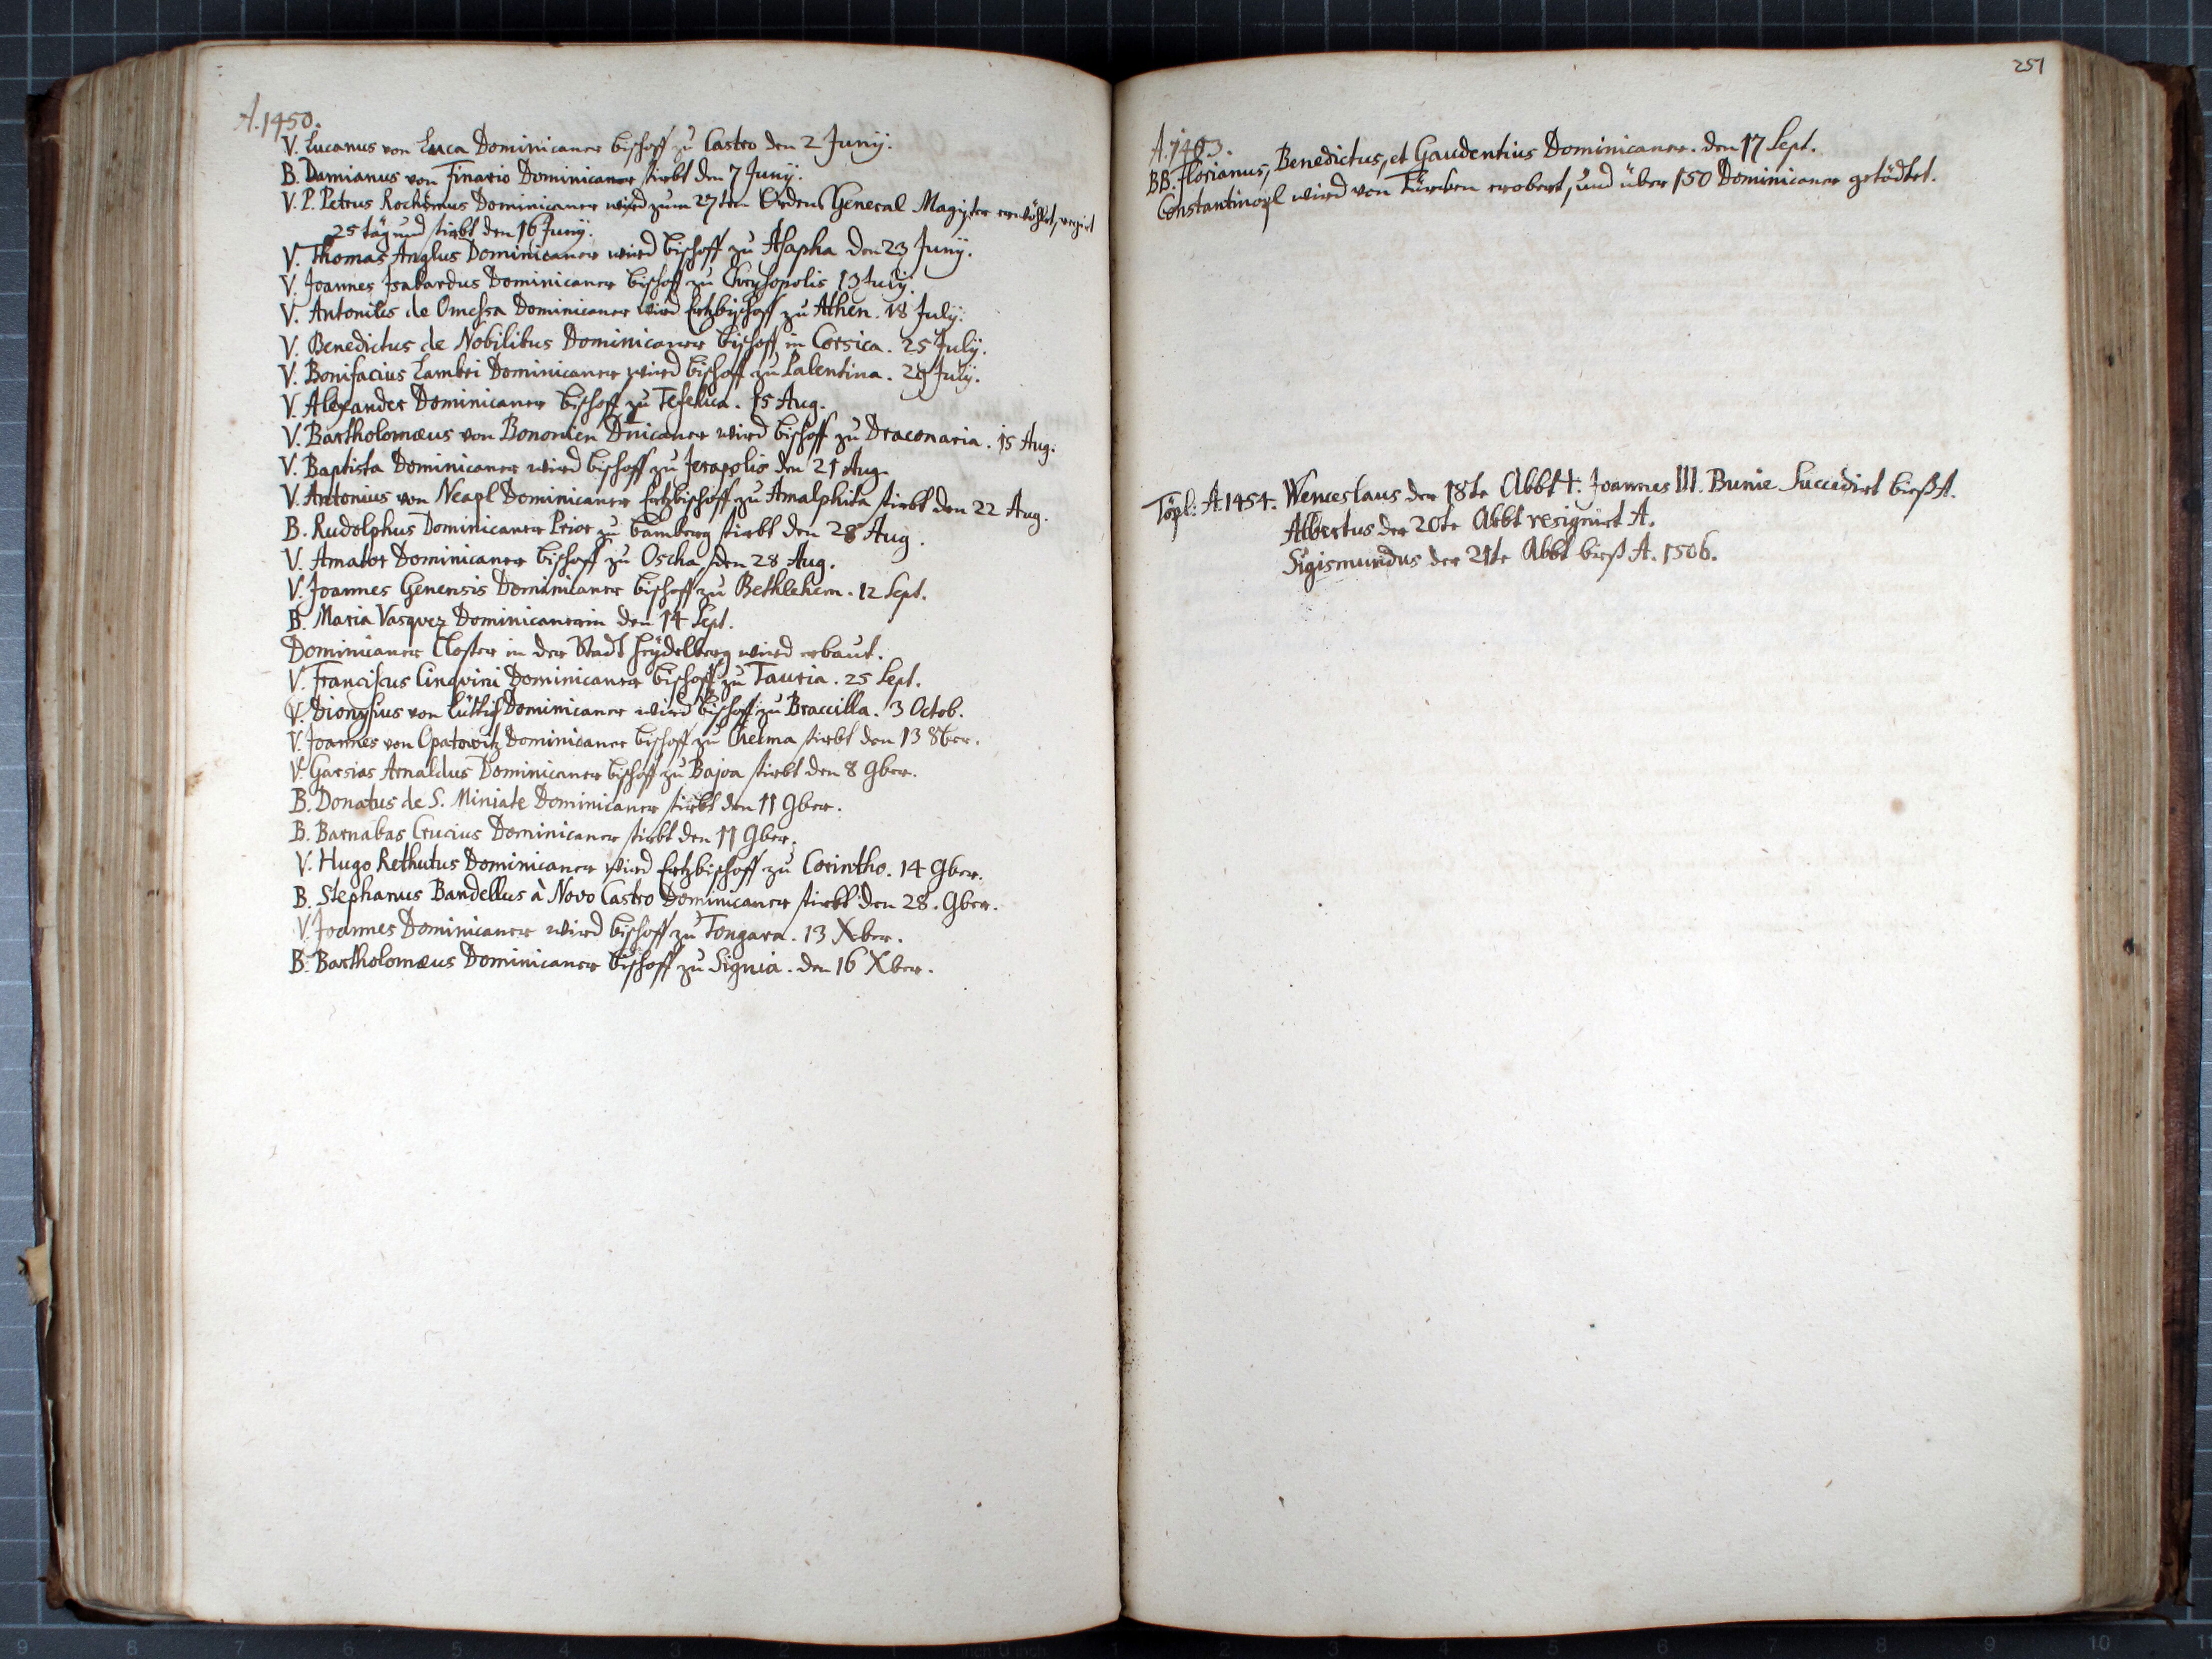 A. 1450.
V. Lucanus von Luca Dominicaner bischoff zu Castro den 2 Junij.
B. Damianus von Finario Dominicaner stirbt den 7 Junij.
V. P. Petrus Rochinus Dominicaner wird zum 27ten Ordens General Magister erwöhlet, regirt
25 täg und stirbt den 16 Junij.
V. Thomas Anglus Dominicaner wird bischoff zu Asapha den 23 Junij.
V. Joannes Isabardus Dominicaner bischoff zu Chrysopolis 13 July.
V. Antonius de Omessa Dominicaner wird Ertzbischoff zu Athen. 18 July.
V. Benedictus de Nobilibus Dominicaner bischoff in Corsica. 25 July.
V. Bonifacius Lambri Dominicaner wird bischoff zu Palentina. 29 July.
V. Alexander Dominicaner bischoff zu Tefelica. 15 Aug.
V. Bartholomæus von Bononien Dnicaner wird bischoff zu Draconaria. 15 Aug.
V. Baptista Dominicaner wird bischoff zu Jerapolis den 21 Aug.
V. Antonius von Neapl Dominicaner Ertzbischoff zu Amalphita stirbt den 22 Aug.
B. Rudolphus Dominicaner Prior zu bamberg stirbt den 28 Aug.
V. Amator Dominicaner bischoff zu Oscha, den 28 Aug.
V. Joannes Genensis Dominicaner bischoff zu Bethlehem. 12 Sept.
B. Maria Vasquez Dominicanerin den 14 Sept.
Dominicaner Closter in der Stadt Heydelberg wird erbaut.
V. Franciscus Cinquini Dominicaner bischoff zu Tauria. 25 Sept.
V. Dionysius von Lüttig Dominicaner wird bischoff zu Braccilla. 3 Octob.
V. Joannes von Opatowitz Dominicaner bischoff zu Chelma stirbt den 13 8ber.
V. Garsias Arnaldus Dominicaner bischoff zu Bajoa stirbt den 8 9ber.
B. Donatus de S. Miniate Dominicaner stirbt den 11 9ber.
B. Barnabas Crucius Dominicaner stirbt den 11 9ber.
V. Hugo Rethutus Dominicaner wird Ertzbischoff zu Corintho. 14 9ber.
B. Stephanus Bandellus à Novo Castro Dominicaner stirbt den 28. 9ber.
V. Joannes Dominicaner wird bischoff zu Tongara. 13 Xber.
B. Bartholomæus Dominicaner bischoff zu Signia. den 16 Xber.
251
A. 1453.
BB. Florianus, Benedictus, et Gaudentius Dominicaner. den 17 Sept.
Constantinopl wird von Türcken erobert, und über 150 Dominicaner getödtet.
Töpl: A. 1454. Wenceslaus der 18te Abbt †. Joannes III. Bunie Succedirt bieß A.
Albertus der 20te Abbt resignirt A.
Sigismundus der 21te Abbt bieß A. 1506.